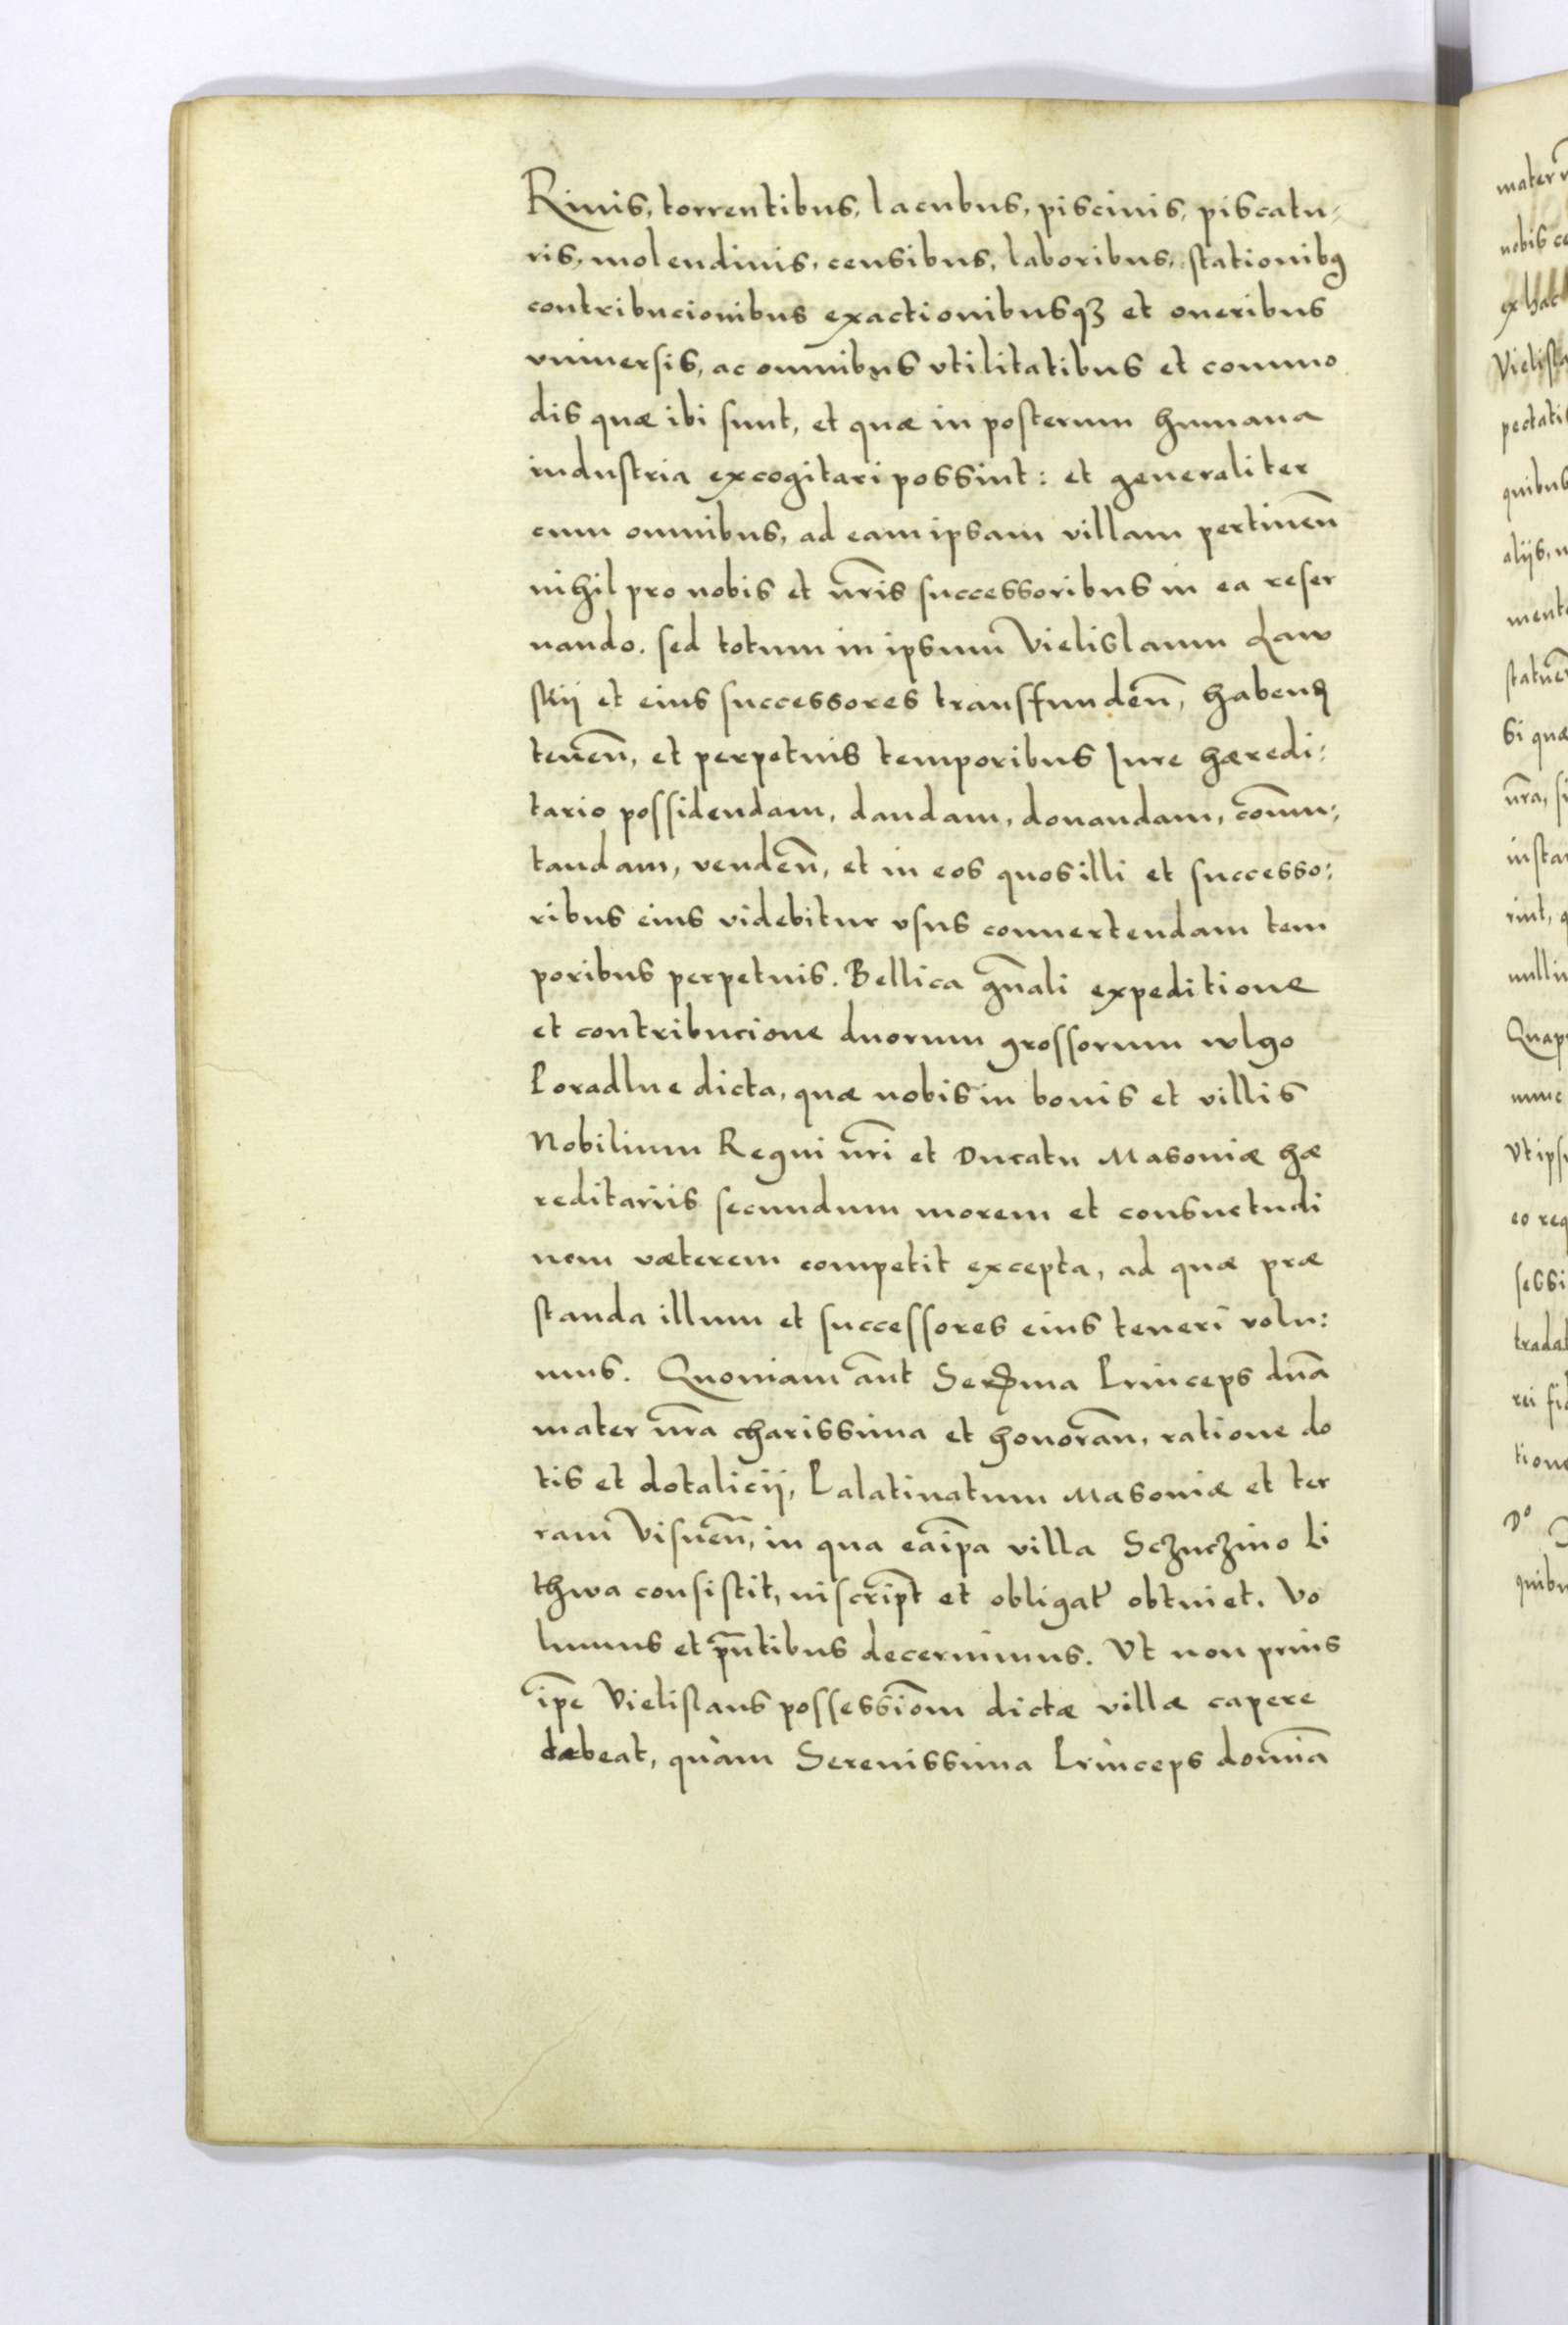 Riuis, torrentibus, lacubus, piscinis, piscatu-
ris, molendinis, censibus, laboribus, stationibꝰ
contribucionibus exactionibusqꝫ et oneribus
vniuersis, ac omnibus vtilitatibus et commo
dis quæ ibi sunt, et quæ in posterum humana
industria excogitari possint: et generaliter
cum omnibus, ad eam ipsam villam pertineñ
nihil pro nobis et nr̃is successoribus in ea reser
uando. sed totum in ipsum Vielislaum Law
skii et eius successores transfundeñ, habenđ
teneñ, et perpetuis temporibus Iure hæredi:
tario possidendam, dandam, donandam, com̃u:
tandam, vendeñ, et in eos quos illi et successo:
ribus eius videbitur vsus conuertendam tem
poribus perpetuis. Bellica gñali expeditione
et contribucione duorum grossorum wlgo
Poradlne dicta, quæ nobis in bonis et villis
Nobilium Regni nr̃i et Ducatu Masoniæ hæ
reditariis secundum morem et consuetudi
nem væterem competit excepta, ad quæ præ
standa illum et successores eius teneri volu:
mus. Quoniam aũt Serꝫma Princeps dña
mater nr̃a charissima et honorañ, ratione do
tis et dotalicii, Palatinatum Masoniæ et ter
ram Visneñ, in qua eaip̃a villa Sczuczino Li
thwa consistit, inscript̃ et obligat̃ obtinet. Vo
lumus et pñtibus decernimus. Vt non prius
ip̃e Vielislaus possessiom̃ dictæ villæ capere
dæbeat, quàm Serenissima Princeps domĩa
mater
nobis ce
ex hac
Vielisla
pectati
quibus
aliis,
Si quæ
nr̃a, si
Vt ips
eo req
sessi
tradat
tione